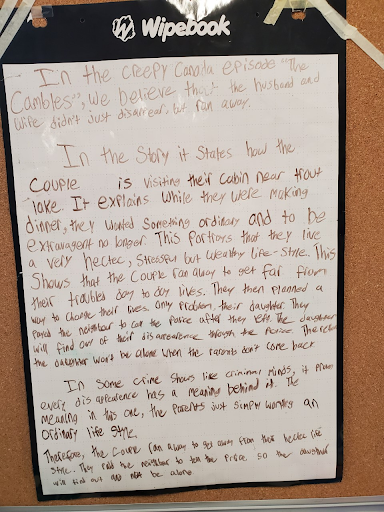 Wipebook
In the creepy Canada episode "The
Cambles", we believe that the husband and
wife didn't just disappear, but ran away.
In the Story it States how the
Couple is visiting their Cabin near trout
lake. It explains while they were making
dinner, they wanted Something ordinary and to be
extravagent no longer. This portrays that they live
a very hectec, Stressful but wealthy life-Style. This
Shows that the Couple ran away to get far from
their troubles day to day lives. They then planned a
way to change their lives. Only Problem, their daughter. They
payed the neighbour to call the Police after they left. The daughter
will find out of their disappearence through the Police. Therefore
the daughter won't be alone when the parents don't come back
In Some crime Shows like criminal minds, it proves
every disappearence has a meaning behind it. The
meaning in this one, the parents just simply wanted an
Ordinary life Style.
Therefore, the Couple ran away to get away from their hectec life
Style. They paid the neighbor to tell the Police so the daughter
will find out and not be alone